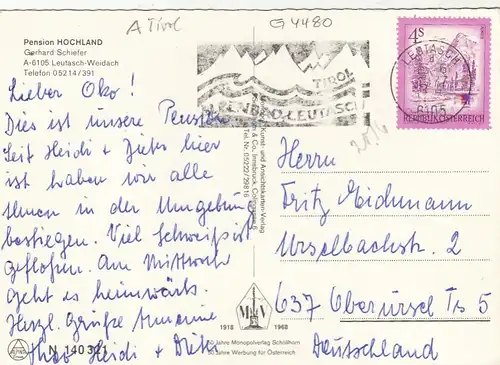 A Tirol
G 4480
Pension HOCHLAND
Gerhard Schiefer
A-6105 Leutasch-Weidach
Telefon 05214/391
Lieber Oko!
Dies ist unsere Pension
Seit Heidi & Dieter hier
ist haben wir alle
in der Umgebung
bestiegen. Viel Schweiß ist
geflossen. Am Mittwoch
geht es heimwärts.
Herzl. Grüße
Heidi & Dieter
N 140 321
TIROL
LEUTASCH
4S
LEUTASCH
6105
REPUBLIK ÖSTERREICH
Kunst- und Ansichtskarten-Verlag
Tel. Nr. 05222/29816
Herrn
Fritz
Urselbachstr. 2
637 Oberursel Ts 5
Deutschland
1918
1968
50 Jahre Monopolverlag Schöllhorn
50 Jahre Werbung für Österreich